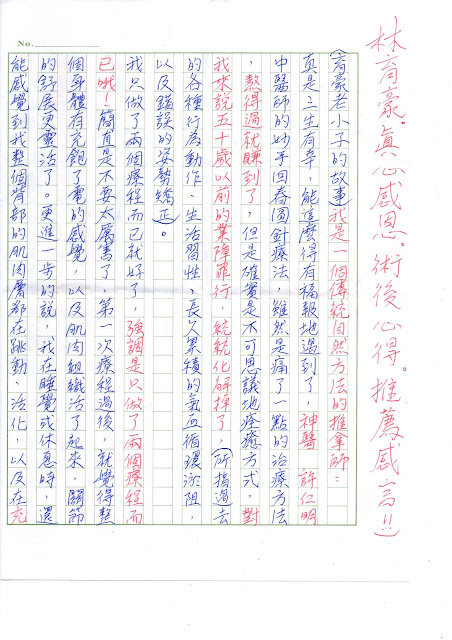 林育豪。真心感恩。術後心得。推薦感言!!
No.
(育豪老小子的故事)我是一個傳統自然方法的推拿師:
真是三生有幸,能這麼得有福報地遇到了,神醫 許仁明
中醫師的妙手回春圓針療法,雖然是痛了一點的治療方法
,熬得過就賺到了,但是確實是不可思議地痊癒方式,對
我來說五十歲以前的業障罪行,統統化解掉了,(所指過)去
的各種行為動作、生活習性、長久累積的氣血循環淤阻,
以及錯誤的姿勢矯正。
我只做了兩個療程而已就好了,強調是只做了兩個療程而
已哦!簡直是不要太厲害了,第一次療程過後,就覺得整
個身體有充飽了電的感覺,以及肌肉組織活了起來,關節
的舒展更靈活了。更進一步的說,我在睡覺或休息時,還
能感覺到我整個背部的肌肉膚都在跳動、活化,以及在充